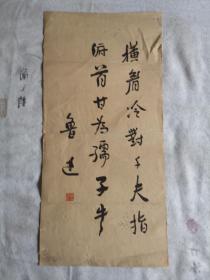 橫眉冷對千夫指
俯首甘为孺子牛
魯迅